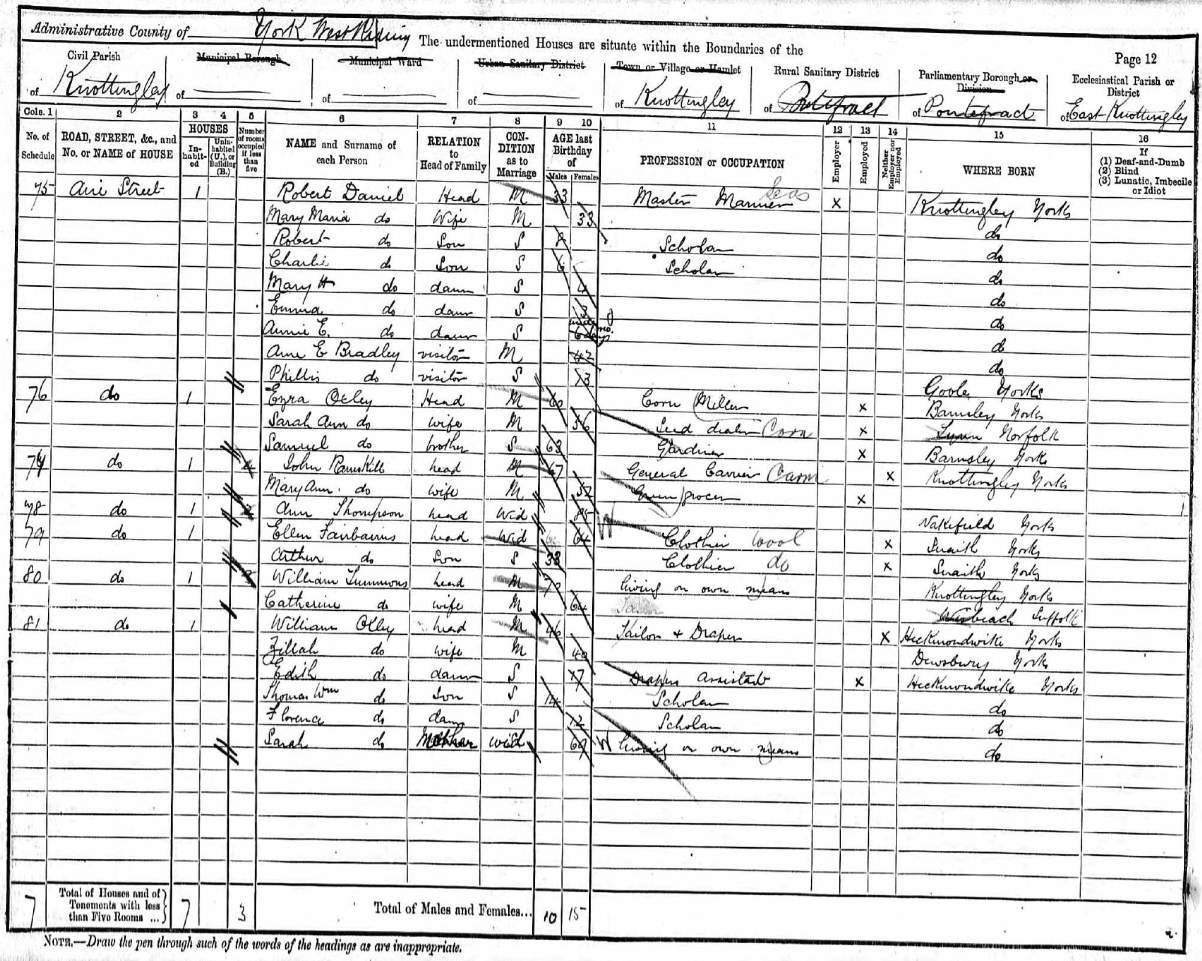 Administrative County of York West Riding The undermentioned Houses are situate within the Boundaries of the
Page 12
Civil Parish of Knottingley
Municipal Borough of
Municipal Ward of
Urban Sanitary District of
Town or Village or Hamlet of Knottingley
Rural Sanitary District of Pontefract
Parliamentary Borough or Division of Pontefract
Ecclesiastical Parish or District of East Knottingley
Cols. 1 2 3 4 5 6 7 8 9 10 11 12 13 14 15 16
No. of Schedule
ROAD, STREET, &c., and No. or NAME of HOUSE
HOUSES
In-habit-ed
Unin-habited (U.), or Building (B.)
Number of rooms occupied if less than five
NAME and Surname of each Person
RELATION to Head of Family
CON-DITION as to Marriage
AGE last Birthday of
Males Females
PROFESSION or OCCUPATION
Employer
Employed
Neither Employer nor Employed
WHERE BORN
If
(1) Deaf-and-Dumb
(2) Blind
(3) Lunatic, Imbecile or Idiot
75 Aire Street 1 Robert Daniel Head M 33 Master Mariner Seas X Knottingley Yorks
Mary Maria do Wife M 33 do
Robert do Son S 8 Scholar do
Charlie do Son S 6 Scholar do
Mary H do daur S 4 do
Emma do daur S 3 do
Annie E. do daur S do
Ann E Bradley visitor M 42 do
Phillis do visitor S 13 Goole Yorks
76 do 1 Ezra Otley Head M 60 Corn Miller X Barnsley Yorks
Sarah Ann do wife M 56 Seed dealer Corn X Lynn Norfolk
Samuel do brother S 63 Gardiner X Barnsley Yorks
77 do 1 John Ramskill head M 67 General Carrier X Knottingley Yorks
Mary Ann do wife M 57 Green grocer X
78 do 1 Ann Thompson head Wid 85 Wakefield Yorks
79 do 1 Ellen Fairbairns head Wid 64 Clothier wool X Snaith Yorks
Arthur do Son S 33 Clothier do X Snaith Yorks
80 do 1 William Timmons head M 70 living on own means Knottingley Yorks
Catherine do wife M 64 Suffolk
81 do 1 William Otley head M 46 Tailor & Draper X Heckmondwike Yorks
Zillah do wife M 40 Dewsbury Yorks
Edith do daur S 17 Drapers Assistant X Heckmondwike Yorks
Thomas Wm do Son S 14 Scholar do
Florence do daur S 12 Scholar do
Sarah do Mother wid 69 W living on own means do
7 Total of Houses and of Tenements with less than Five Rooms ... 7 3 Total of Males and Females... 10 15
NOTE.—Draw the pen through such of the words of the headings as are inappropriate.